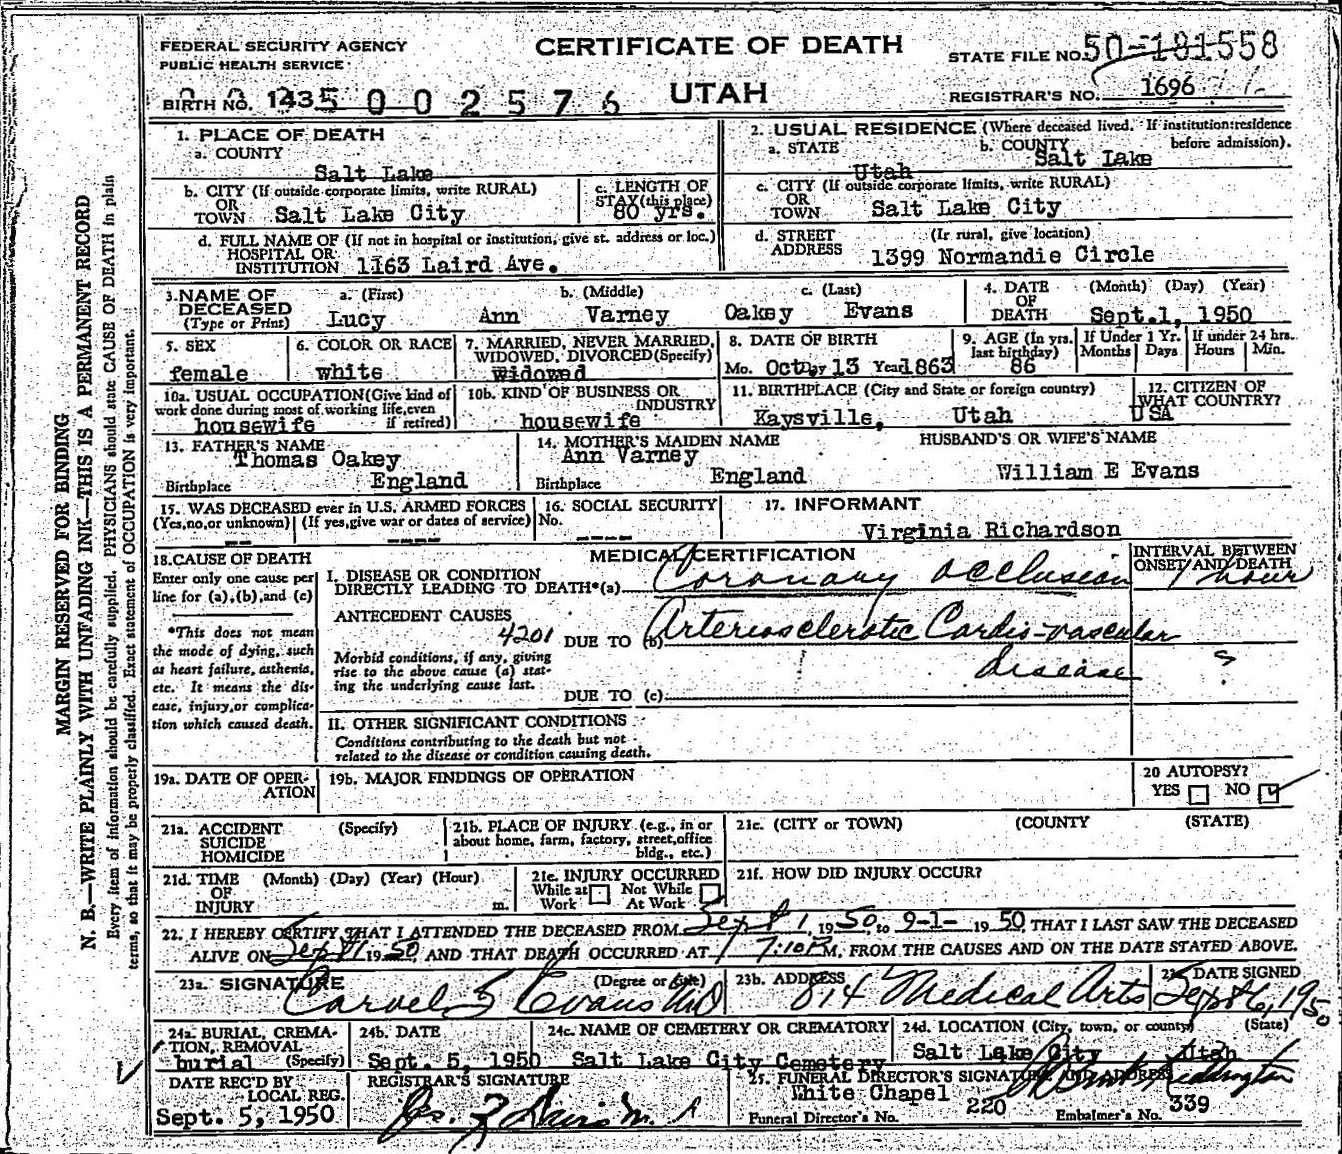 FEDERAL SECURITY AGENCY
PUBLIC HEALTH SERVICE
CERTIFICATE OF DEATH
UTAH
STATE FILE NO. 50-181558
REGISTRAR'S NO. 1696
BIRTH NO. 1435 002576
1. PLACE OF DEATH
a. COUNTY
Salt Lake
2. USUAL RESIDENCE (Where deceased lived. If institution:residence before admission).
a. STATE Utah b. COUNTY Salt Lake
b. CITY (If outside corporate limits, write RURAL)
OR
TOWN Salt Lake City
c. LENGTH OF
STAY (this place)
80 yrs.
c. CITY (If outside corporate limits, write RURAL)
OR
TOWN Salt Lake City
d. FULL NAME OF (If not in hospital or institution, give st. address or loc.)
HOSPITAL OR
INSTITUTION 1163 Laird Ave.
d. STREET (If rural, give location)
ADDRESS 1399 Normandie Circle
3. NAME OF DECEASED (Type or Print)
a. (First) b. (Middle) c. (Last)
Lucy Ann Varney Oakey Evans
4. DATE OF DEATH (Month) (Day) (Year)
Sept. 1, 1950
5. SEX
female
6. COLOR OR RACE
white
7. MARRIED, NEVER MARRIED,
WIDOWED, DIVORCED (Specify)
widowed
8. DATE OF BIRTH
Mo. Oct Day 13 Year 1863
9. AGE (In yrs. last birthday)
86
If Under 1 Yr.
Months Days
If under 24 hrs.
Hours Min.
10a. USUAL OCCUPATION (Give kind of
work done during most of working life, even
if retired)
housewife
10b. KIND OF BUSINESS OR
INDUSTRY
housewife
11. BIRTHPLACE (City and State or foreign country)
Kaysville, Utah
12. CITIZEN OF
WHAT COUNTRY?
USA
13. FATHER'S NAME
Thomas Oakey
Birthplace England
14. MOTHER'S MAIDEN NAME
Ann Varney
Birthplace England
HUSBAND'S OR WIFE'S NAME
William E Evans
15. WAS DECEASED ever in U.S. ARMED FORCES
(Yes, no, or unknown) (If yes, give war or dates of service)
16. SOCIAL SECURITY
No.
17. INFORMANT
Virginia Richardson
18. CAUSE OF DEATH
Enter only one cause per
line for (a), (b), and (c)
*This does not mean
the mode of dying, such
as heart failure, asthenia,
etc. It means the dis-
ease, injury, or complica-
tion which caused death.
MEDICAL CERTIFICATION
INTERVAL BETWEEN
ONSET AND DEATH
I. DISEASE OR CONDITION
DIRECTLY LEADING TO DEATH*(a) Coronary occlusion 1 hour
ANTECEDENT CAUSES
4201 DUE TO (b) Arteriosclerotic Cardio-vascular
disease ?
Morbid conditions, if any, giving
rise to the above cause (a) stat-
ing the underlying cause last.
DUE TO (c)
II. OTHER SIGNIFICANT CONDITIONS
Conditions contributing to the death but not
related to the disease or condition causing death.
19a. DATE OF OPER-
ATION
19b. MAJOR FINDINGS OF OPERATION
20 AUTOPSY?
YES NO
21a. ACCIDENT (Specify)
SUICIDE
HOMICIDE
21b. PLACE OF INJURY (e.g., in or
about home, farm, factory, street, office
bldg., etc.)
21c. (CITY or TOWN) (COUNTY (STATE)
21d. TIME (Month) (Day) (Year) (Hour)
OF
INJURY m.
21e. INJURY OCCURRED
While at Work Not While At Work
21f. HOW DID INJURY OCCUR?
22. I HEREBY CERTIFY THAT I ATTENDED THE DECEASED FROM Sept 1, 1950 to 9-1- 1950 THAT I LAST SAW THE DECEASED
ALIVE ON Sept 1 1950 AND THAT DEATH OCCURRED AT 7:10 P M, FROM THE CAUSES AND ON THE DATE STATED ABOVE.
23a. SIGNATURE (Degree or title)
Carvel S Evans MD
23b. ADDRESS
814 Medical Arts
DATE SIGNED
Sept 6, 1950
24a. BURIAL, CREMA-
TION, REMOVAL
burial (Specify)
24b. DATE
Sept. 5, 1950
24c. NAME OF CEMETERY OR CREMATORY
Salt Lake City Cemetery
24d. LOCATION (City, town, or county) (State)
Salt Lake City Utah
DATE REC'D BY
LOCAL REG.
Sept. 5, 1950
REGISTRAR'S SIGNATURE
25. FUNERAL DIRECTOR'S SIGNATURE AND ADDRESS
White Chapel
Funeral Director's No. 220 Embalmer's No. 339
MARGIN RESERVED FOR BINDING
N. B.—WRITE PLAINLY WITH UNFADING INK—THIS IS A PERMANENT RECORD
Every item of information should be carefully supplied. PHYSICIANS should state CAUSE OF DEATH in plain
terms, so that it may be properly classified. Exact statement of OCCUPATION is very important.